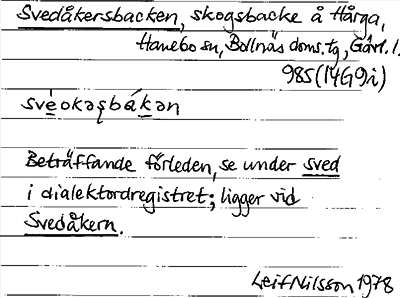 Svedåkersbacken, skogsbacke å Hårga,
Hanebo sn, Bollnäs doms. tg, Gävl. l.
985 (14G9i)
sve̱okəʂbák̲ən
Beträffande förleden, se under sved
i dialektordregistret; ligger vid
Svedåkern.
Leif Nilsson 1978